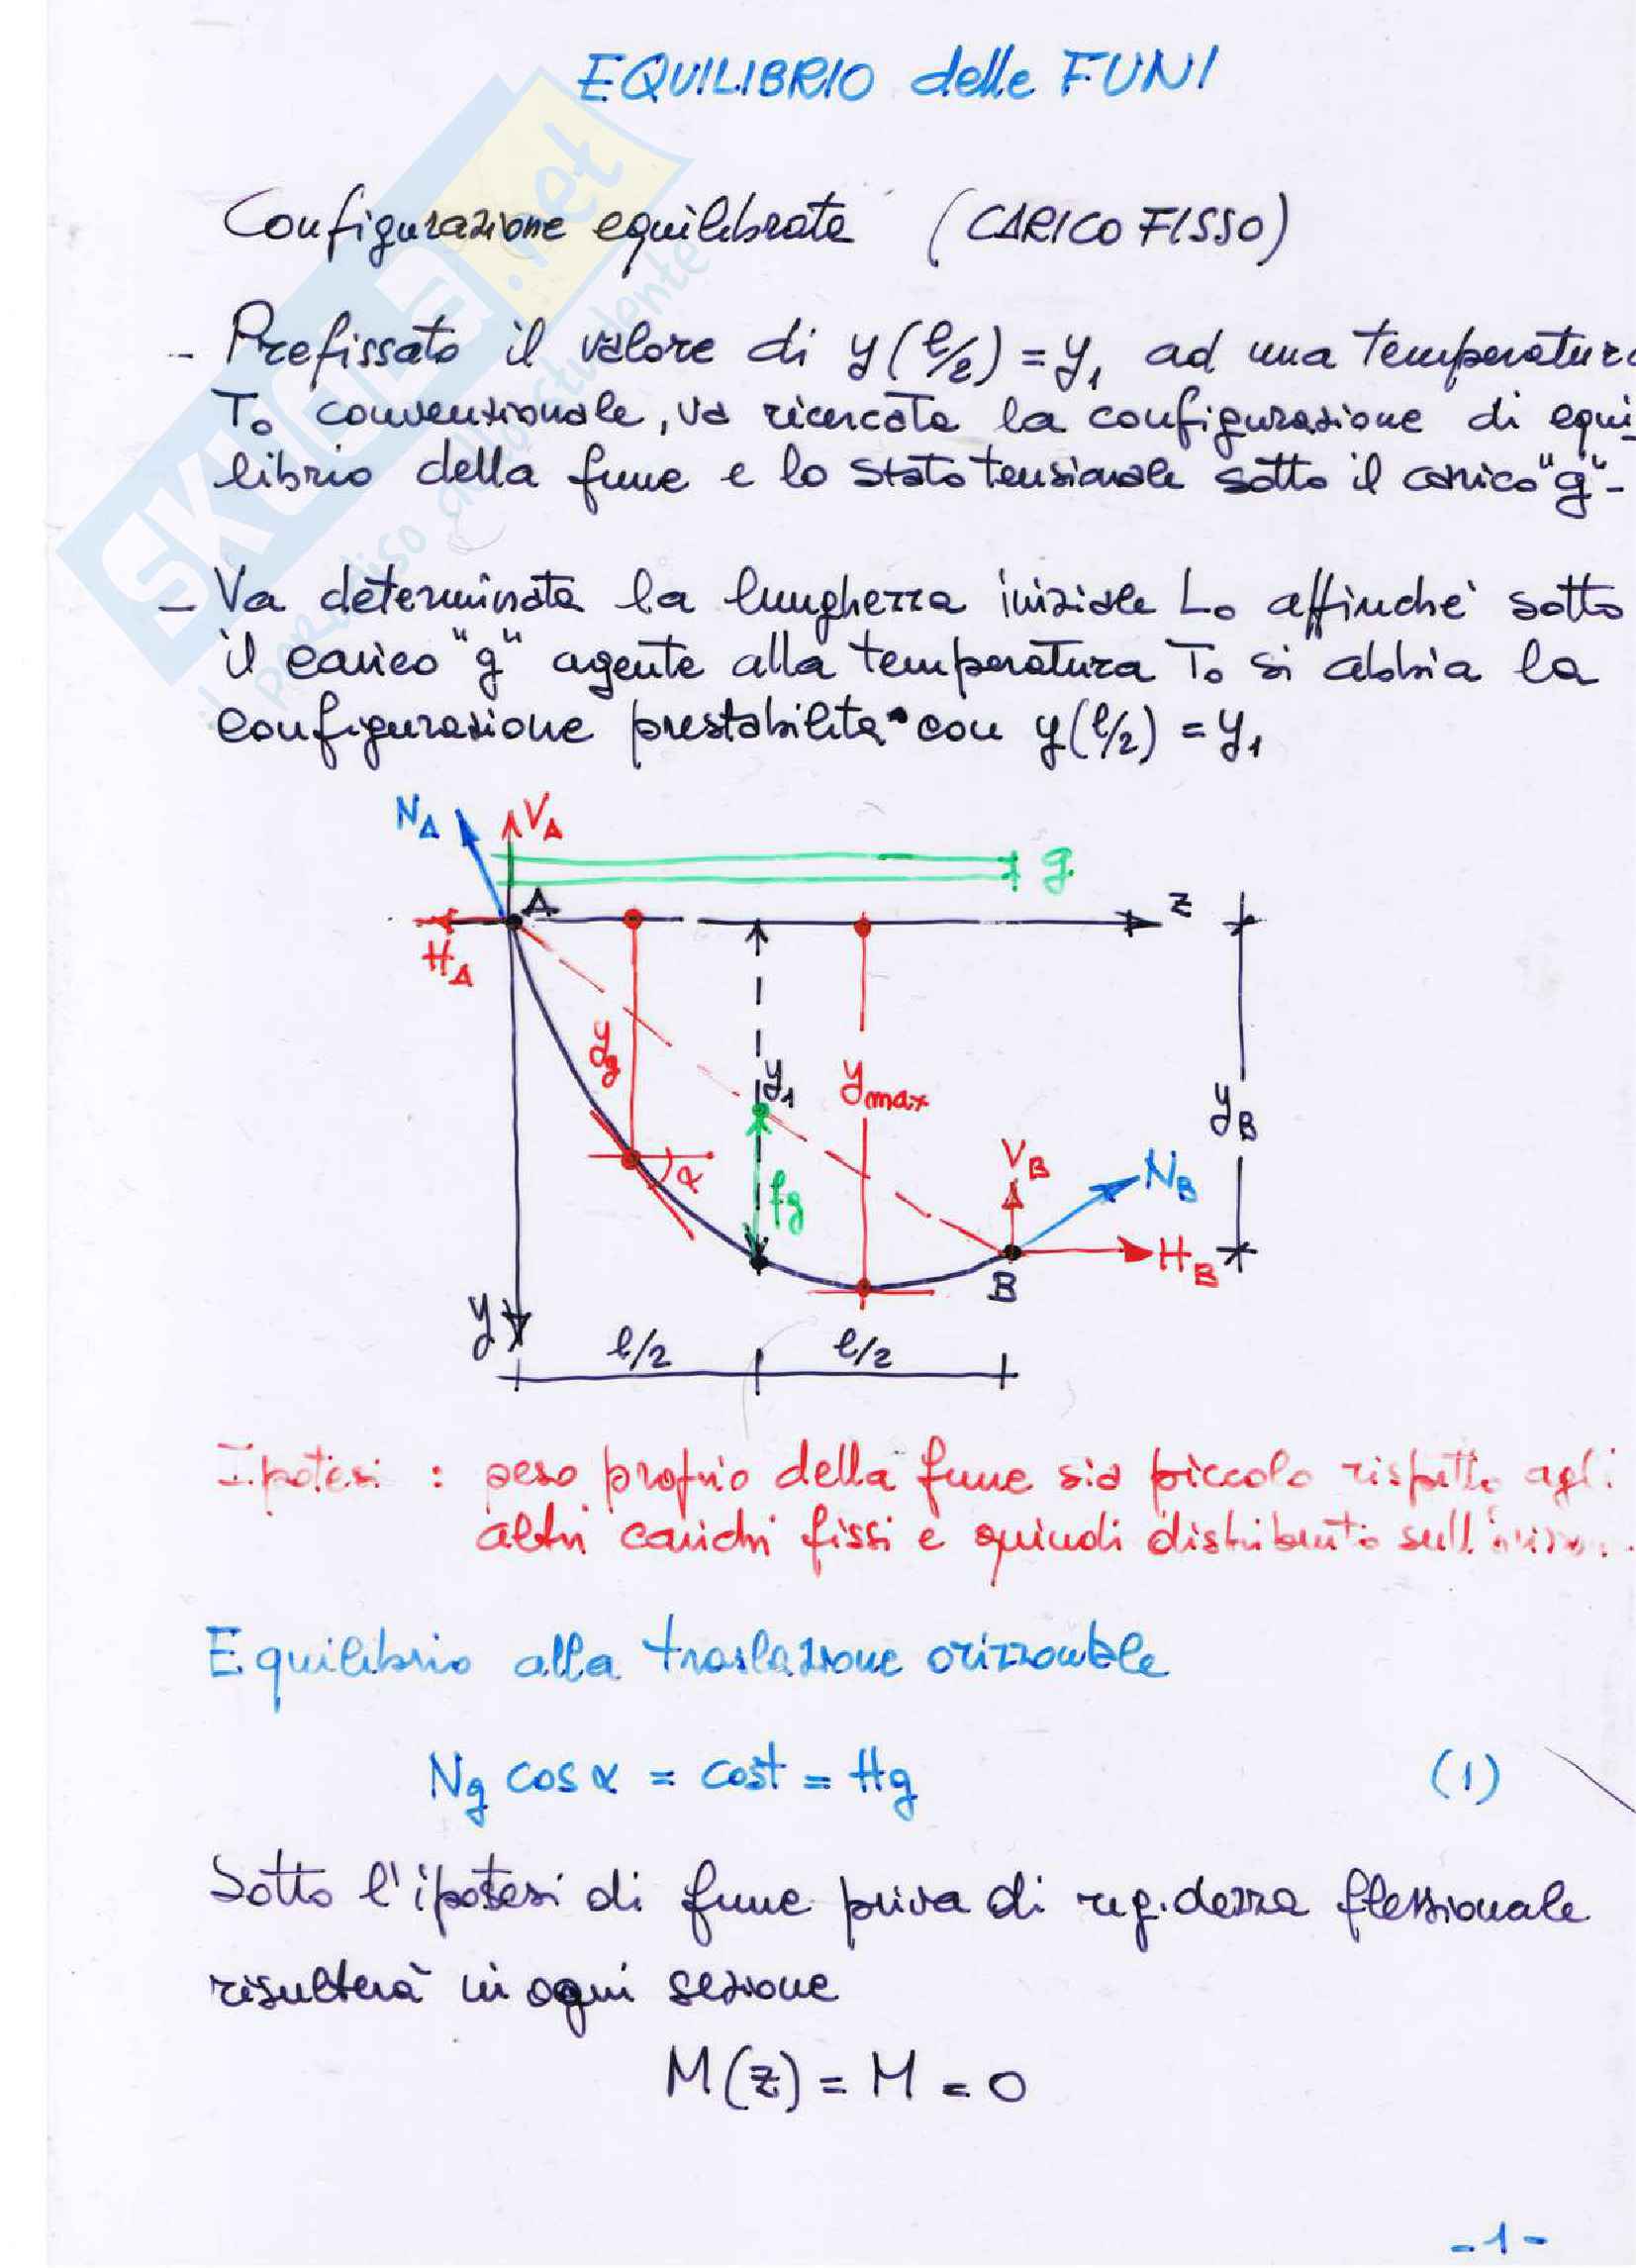 EQUILIBRIO delle FUNI
Configurazione equilibrata (CARICO FISSO)
- Prefissato il valore di y(l/2) = y₁ ad una temperatura
T₀ convenzionale, va ricercata la configurazione di equi
librio della fune e lo stato tensionale sotto il carico "g" -
- Va determinata la lunghezza iniziale L₀ affinché sotto
il carico "g" agente alla temperatura T₀ si abbia la
configurazione prestabilita con y(l/2) = y₁
N_A V_A
g
A z
H_A
y_g y₁ y_max y_B
α f_g V_B N_B
H_B
B
y
l/2 l/2
Ipotesi : peso proprio della fune sia piccolo rispetto agli
altri carichi fissi e quindi distribuito
Equilibrio alla traslazione orizzontale
N_g cos α = cost = H_g (1)
Sotto l'ipotesi di fune priva di rigidezza flessionale
risulterà in ogni sezione
M(z) = M = 0
- 1 -
SKUOLA.net
il paradiso dello studente